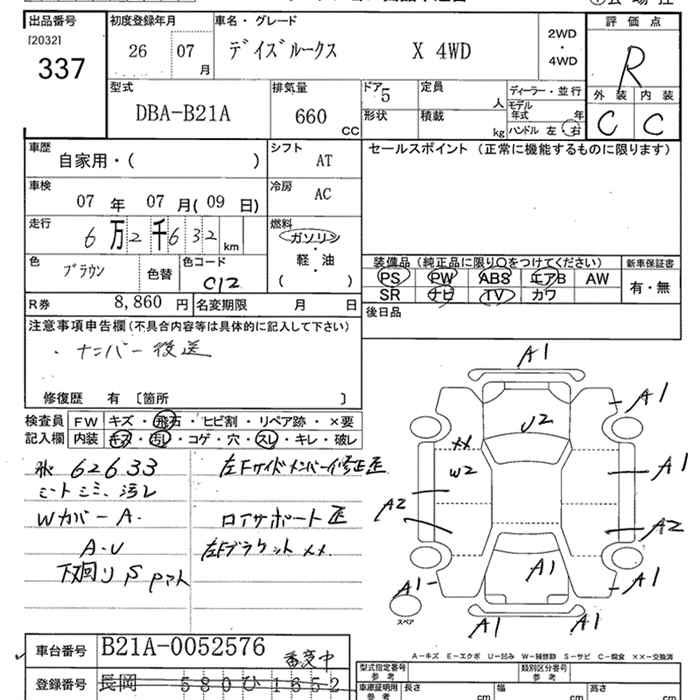 出品番号 初度登録年月 車名・グレード 評価点
[2032]
337
26 07 月
デイズルークス X 4WD
2WD
・
4WD
R
型式 排気量 ドア 定員 ディーラー・並行
外装 内装
DBA-B21A
660 CC
5
人
モデル年式 年
C C
形状 積載 kg ハンドル 左・右
車歴
自家用・( )
シフト
AT
セールスポイント (正常に機能するものに限ります)
車検
07 年 07 月(09 日)
冷房
AC
走行
6 万 2 千 6 3 2 km
燃料
ガソリン
軽・油
( )
色
ブラウン
色替
色コード
C12
装備品 (純正品に限り○をつけてください) 新車保証書
PS PW ABS エアB AW
SR ナビ TV カワ
有・無
R券 8,860 円 名変期限 月 日
後日品
注意事項申告欄(不具合内容等は具体的に記入して下さい)
・ナンバー後送
修復歴 有 〔箇所 〕
検査員 FW キズ・飛石・ヒビ割・リペア跡・×要
記入欄 内装 キズ・汚レ・コゲ・穴・スレ・キレ・破レ
62633
左Fサイドメンバー修正歪
シートシミ、汚レ
Wカバー A.
A.U
下廻りS Pマト
左Fブラケット ××.
A1
A1
U2
××
W2
A1
A2
A2
A1
A1
A1
スペア
A1 A1
車台番号 B21A-0052576
番変中
A-キズ E-エクボ U-凹み W-補修跡 S-サビ C-腐食 ××-交換済
登録番号 長岡 580 ひ 1652
型式指定番号 参考 類別区分番号 参考
車庫証明用 参考 長さ cm 幅 cm 高さ cm